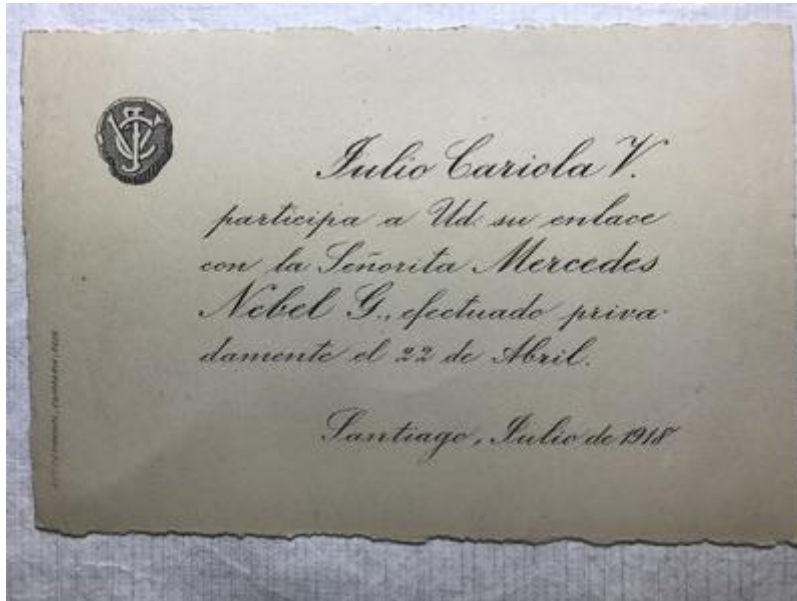 Julio Cariola V.
participa a Ud. su enlace
con la Señorita Mercedes
Nebel G., efectuado priva-
damente el 22 de Abril.
Santiago, Julio de 1918